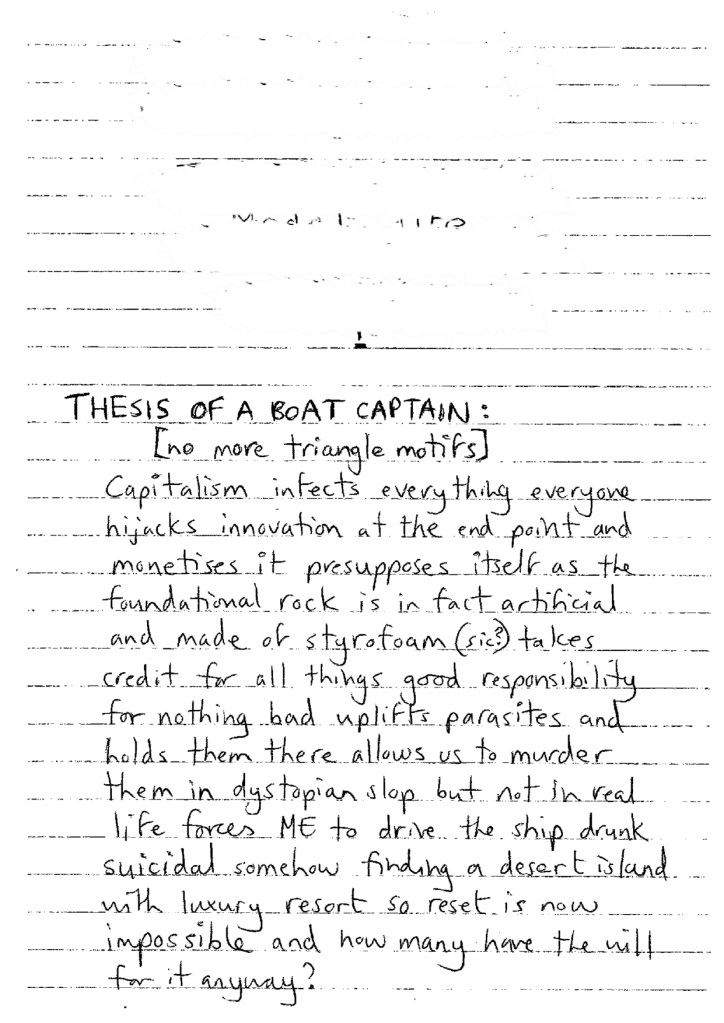 THESIS OF A BOAT CAPTAIN:
[no more triangle motifs]
Capitalism infects everything everyone
hijacks innovation at the end point and
monetises it presupposes itself as the
foundational rock is in fact artificial
and made of styrofoam (sic?) takes
credit for all things good responsibility
for nothing bad uplifts parasites and
holds them there allows us to murder
them in dystopian slop but not in real
life forces ME to drive the ship drunk
suicidal somehow finding a desert island
with luxury resort so reset is now
impossible and how many have the will
for it anyway?